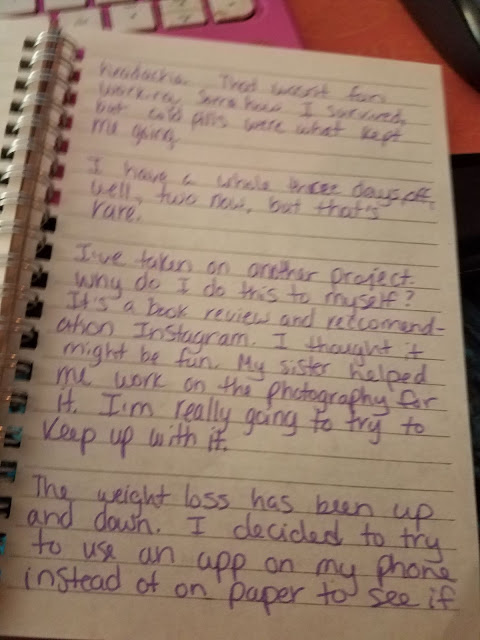 headache. That wasn't fun
working. Somehow I survived,
but cold pills were what kept
me going.
I have a whole three days off,
well, two now, but that's
rare.
I've taken on another project.
Why do I do this to myself?
It's a book review and reccomend-
ation Instagram. I thought it
might be fun. My sister helped
me work on the photography for
it. I'm really going to try to
keep up with it.
The weight loss has been up
and down. I decided to try
to use an app on my phone
instead of on paper to see if